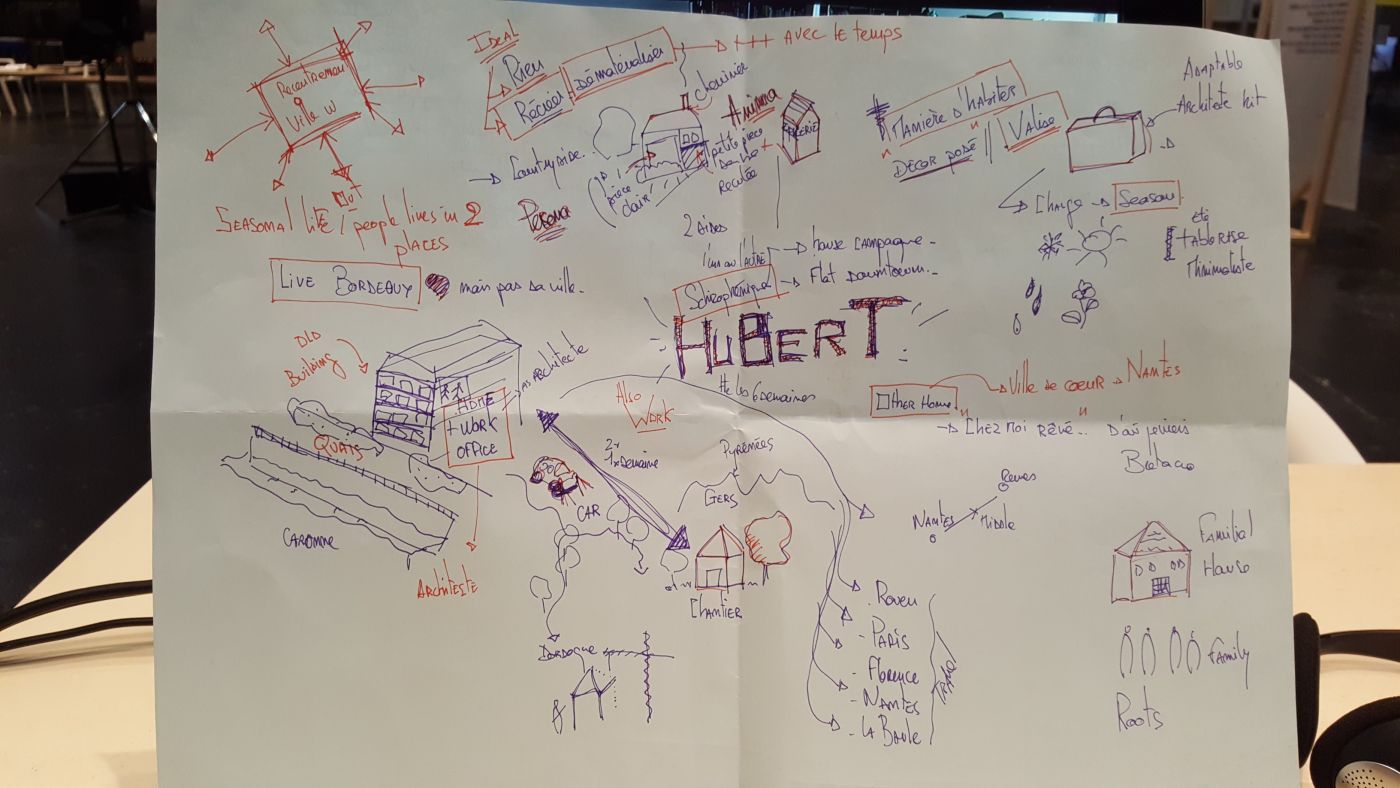 Recentrement
Ville W
OUT
SEASONAL LIFE / people lives in 2
PLACES
IDEAL
RIEN
Récréer
Dématérialiser
+++ AVEC LE TEMPS
cheminée
Anima
Persona
Countryside..
pièce
clair
petite pièce
reculée
2 sides
l'un ou l'autre
house campagne.
Flat Downtown.
Schizophrénique
HUBERT
"Manière D'habiter"
DÉCOR POSÉ // VALISE
Adaptable
Architecte kit
Change
SEASON
été
table RASE
Minimaliste
LIVE BORDEAUX
mais pas sa ville.
OLD
Building
HOME
+ WORK
OFFICE
AS ARCHITECTE
QUAIS
GARONNE
ARCHITECTE
Also
WORK
tte les 6 semaines
2x
1x semaine
CAR
Pyrénées
GERS
CHANTIER
DORDOGNE
- Rouen
- PARIS
- Florence
- NANTES
- LA BAULE
OTHER Home
Ville de coeur
NANTES
"Chez moi Rêvé.."
NANTES
Middle
Familial
House
Family
Roots